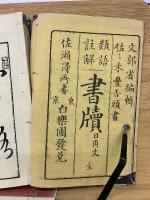 文部省編輯
佐々木豊吉頭書
類語
註解
書牘
日用文
全
佐瀬得所書
東京
白樂圃發兌